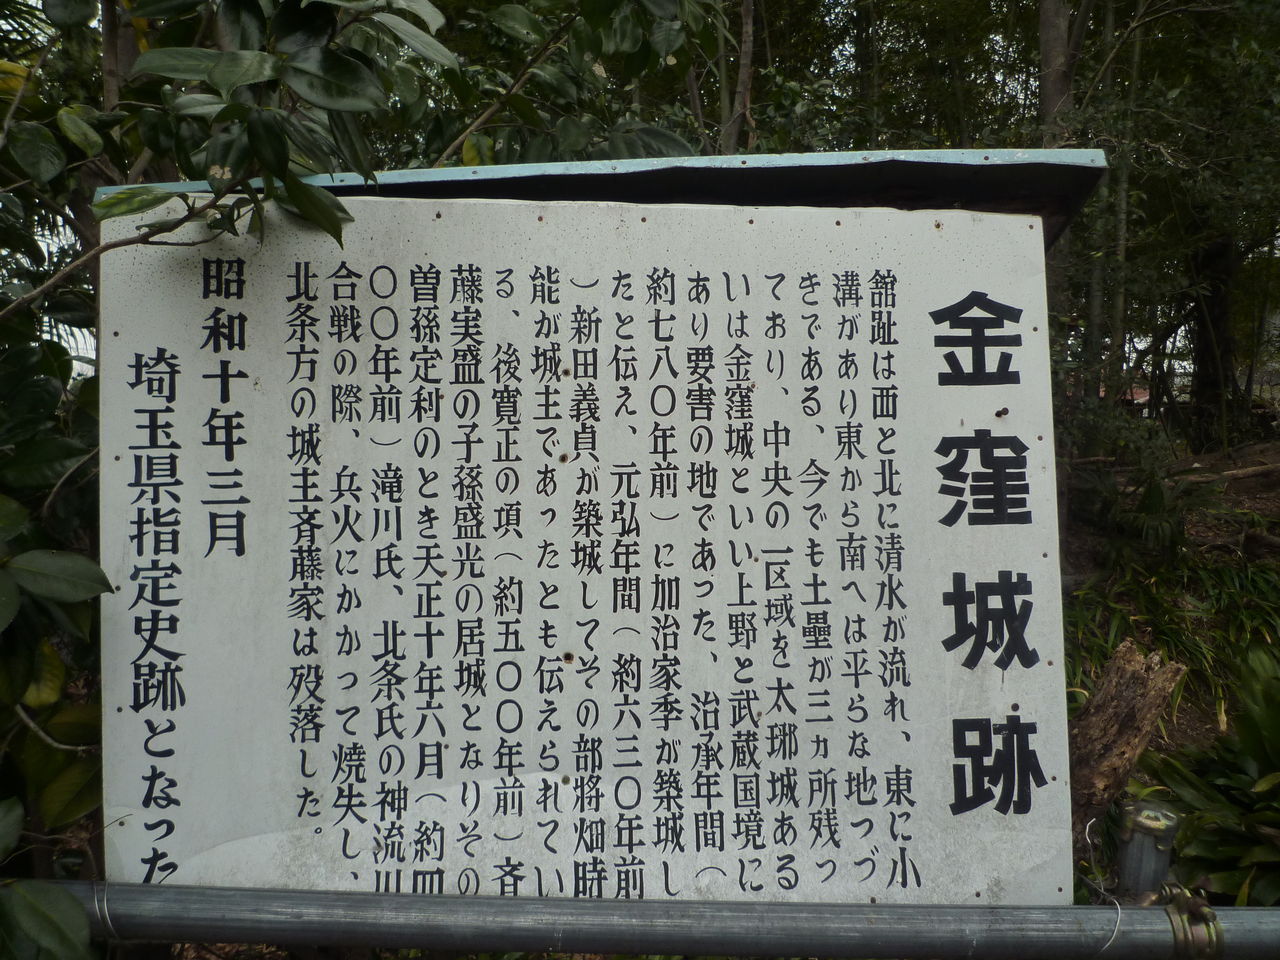 金窪城跡
舘趾は西と北に清水が流れ、東に小
溝があり東から南へは平らな地つづ
きである、今でも土壘が三ヵ所残っ
ており、中央の一区域を太琊城ある
いは金窪城といい上野と武蔵国境に
あり要害の地であった、治承年間（
約七八〇年前）に加治家季が築城し
たと伝え、元弘年間（約六三〇年前
）新田義貞が築城してその部將畑時
能が城主であったとも伝えられてい
る、後寛正の項（約五〇〇年前）斉
藤実盛の子孫盛光の居城となりその
曽孫定利のとき天正十年六月（約四
〇〇年前）滝川氏、北条氏の神流川
合戦の際、兵火にかかって焼失し、
北条方の城主斉藤家は殁落した。
昭和十年三月
埼玉県指定史跡となった